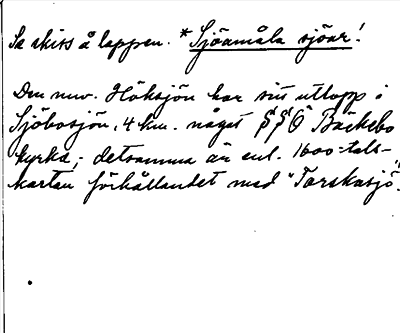 Se skiss å lappen. * Sjöamåla sjöar!
Den nuv. Höksjön har sitt utlopp i
Sjöbosjön, 4 km. något S Ö Bäckebo
kyrka, - detsamma är enl. 1600-tals-
kartan förhållandet med "Torskasjö".